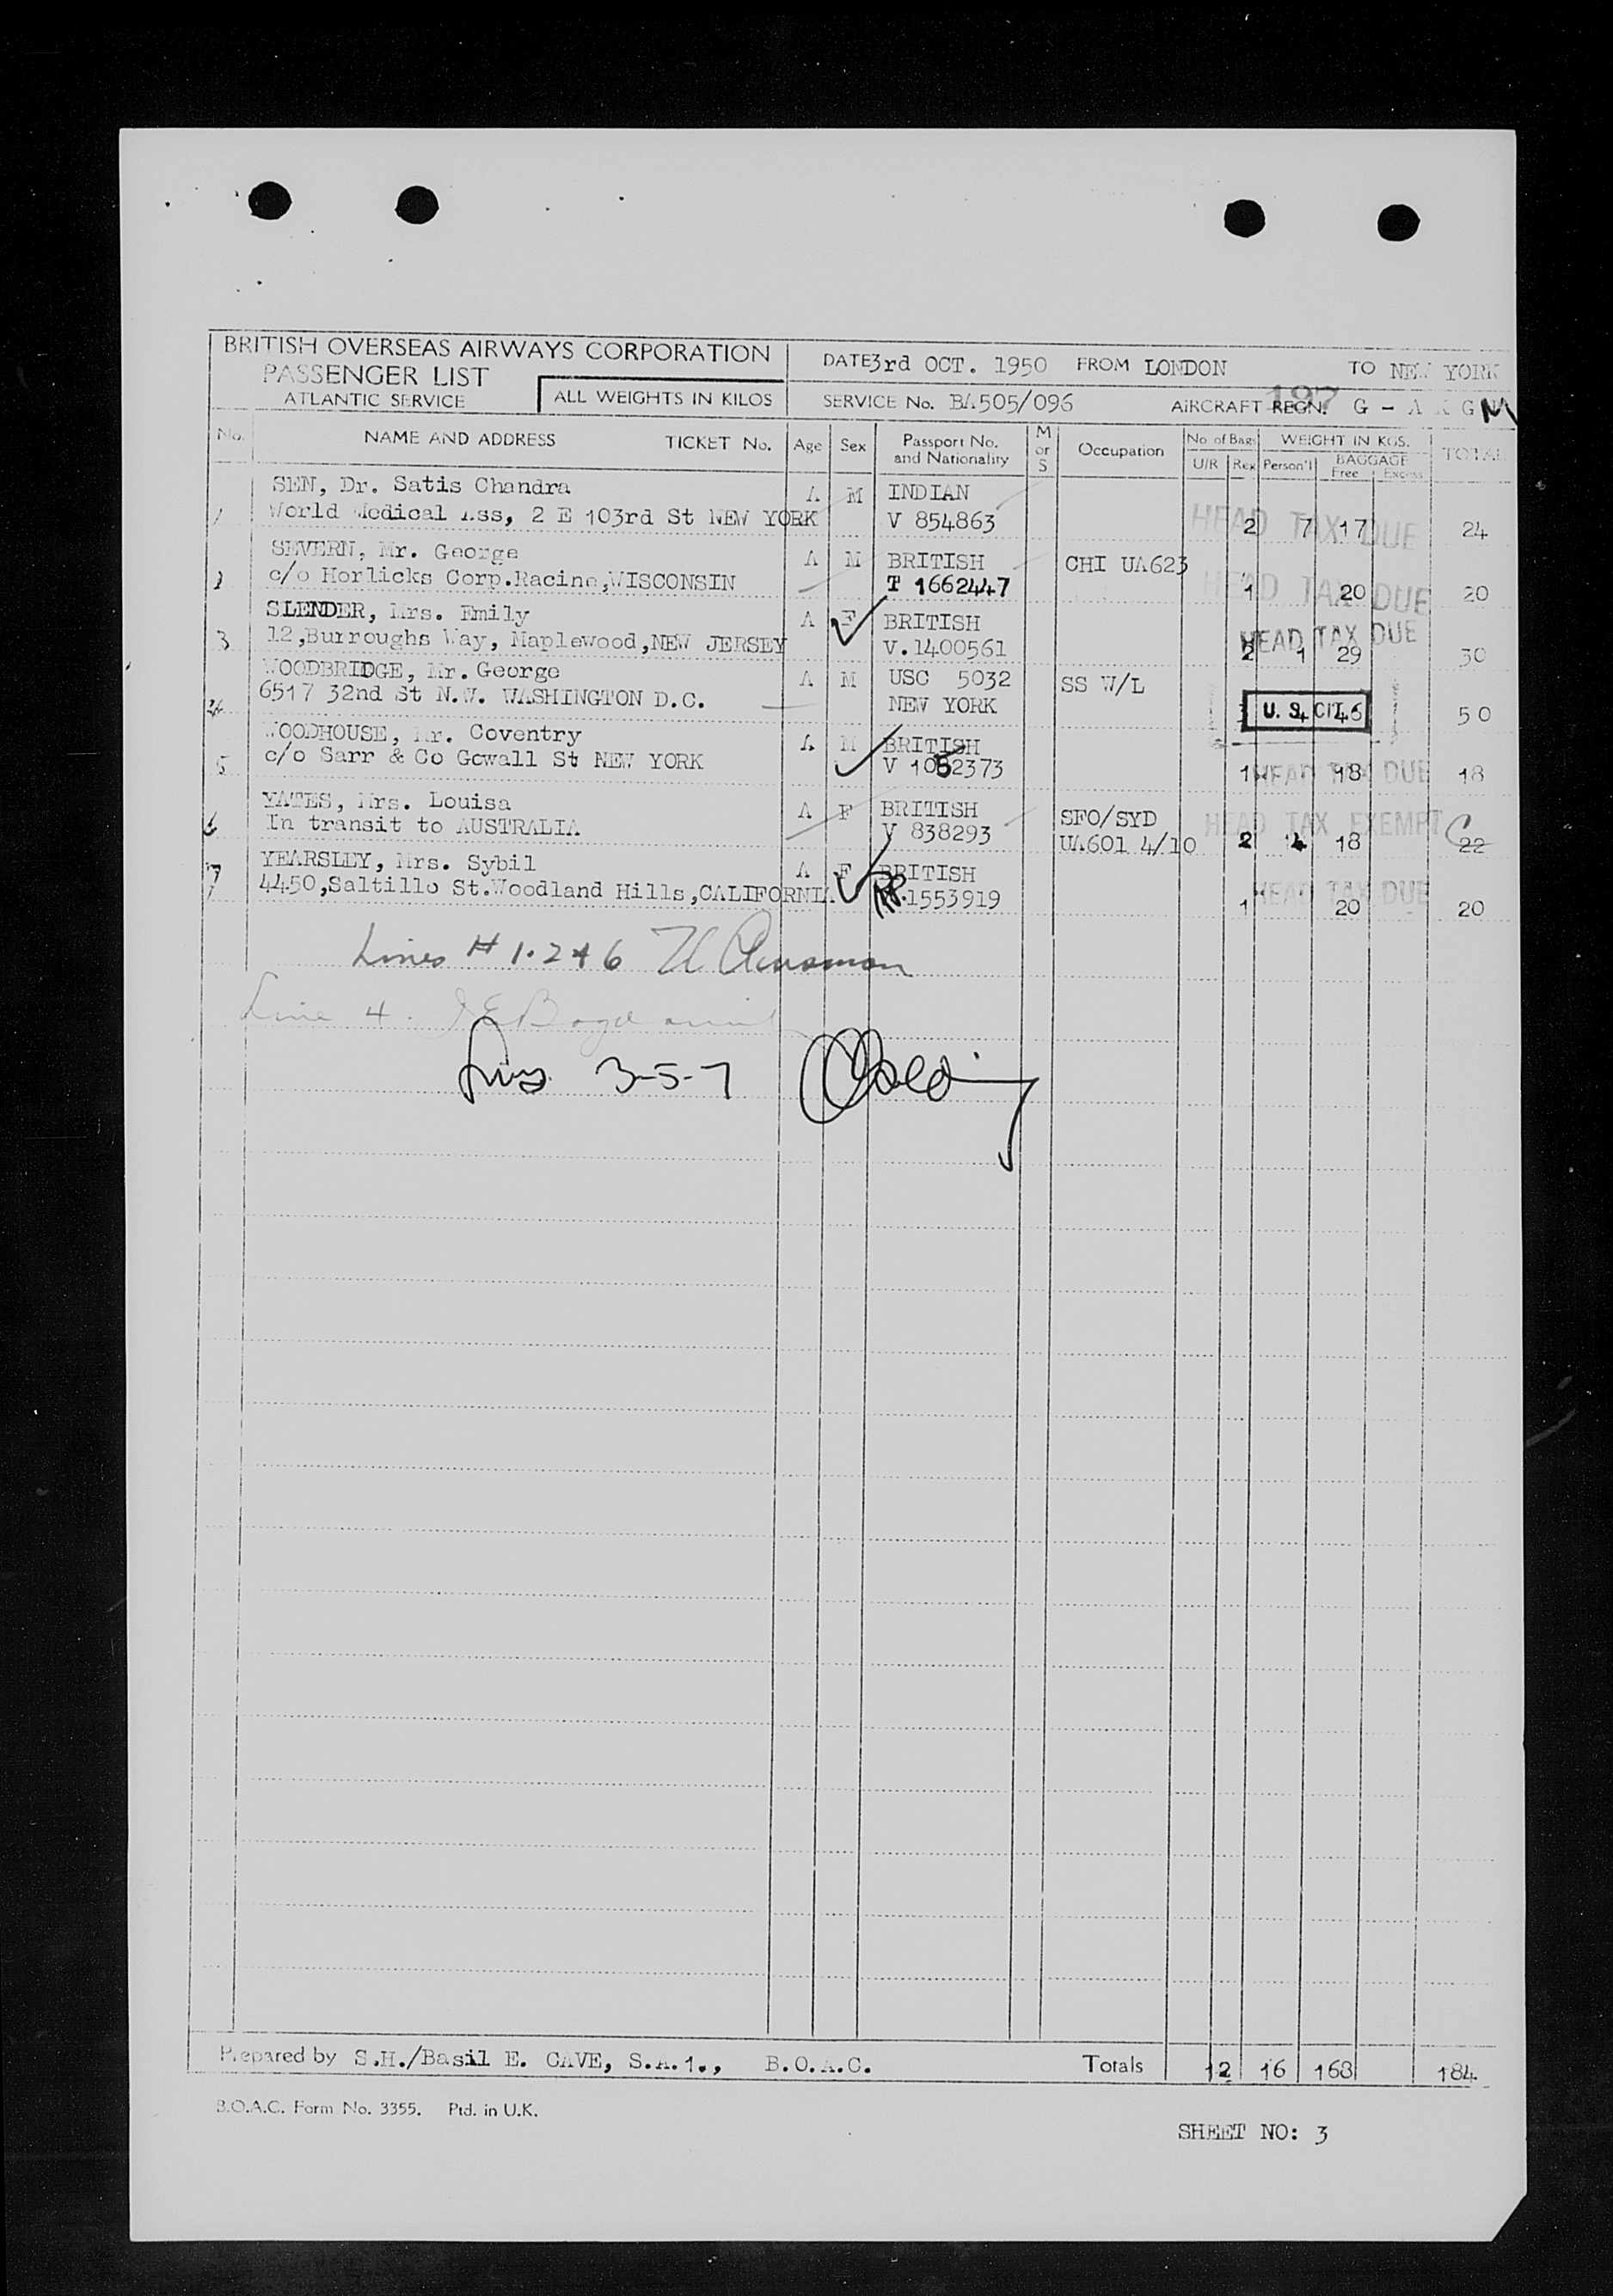 BRITISH OVERSEAS AIRWAYS CORPORATION
PASSENGER LIST
ATLANTIC SERVICE
ALL WEIGHTS IN KILOS
DATE 3rd OCT. 1950 FROM LONDON TO NEW YORK
197
SERVICE No. BA505/096 AIRCRAFT REGN. G - A K G M
No. NAME AND ADDRESS TICKET No. Age Sex Passport No. and Nationality M or S Occupation No of Bags U/R Rex WEIGHT IN KGS. Person'l BAGGAGE Free Excess TOTAL
SEN, Dr. Satis Chandra A M INDIAN
1 World Medical Ass, 2 E 103rd St NEW YORK V 854863 HEAD TAX DUE 2 7 17 24
SEVERN, Mr. George A M BRITISH CHI UA623
2 c/o Horlicks Corp.Racine,WISCONSIN T 1662447 HEAD TAX DUE 1 20 20
SLENDER, Mrs. Emily A F BRITISH
3 12,Burroughs Way, Maplewood,NEW JERSEY V.1400561 HEAD TAX DUE 2 1 29 30
WOODBRIDGE, Mr. George A M USC 5032 SS W/L
4 6517 32nd St N.W. WASHINGTON D.C. NEW YORK U. S. CIT. 3 4 46 50
WOODHOUSE, Mr. Coventry A M BRITISH
5 c/o Sarr & Co Gowall St NEW YORK V 1052373 HEAD TAX DUE 1 18 18
YATES, Mrs. Louisa A F BRITISH SFO/SYD
6 In transit to AUSTRALIA V 838293 UA601 4/10 HEAD TAX EXEMPT 2 4 18 22
YEARSLEY, Mrs. Sybil A F BRITISH
7 4450,Saltillo St.Woodland Hills,CALIFORNIA 1553919 HEAD TAX DUE 1 20 20
Lines # 1·2+6
Line 4.
Lines 3-5-7
Prepared by S.H./Basil E. CAVE, S.A.1., B.O.A.C. Totals 12 16 168 184
B.O.A.C. Form No. 3355. Ptd. in U.K.
SHEET NO: 3